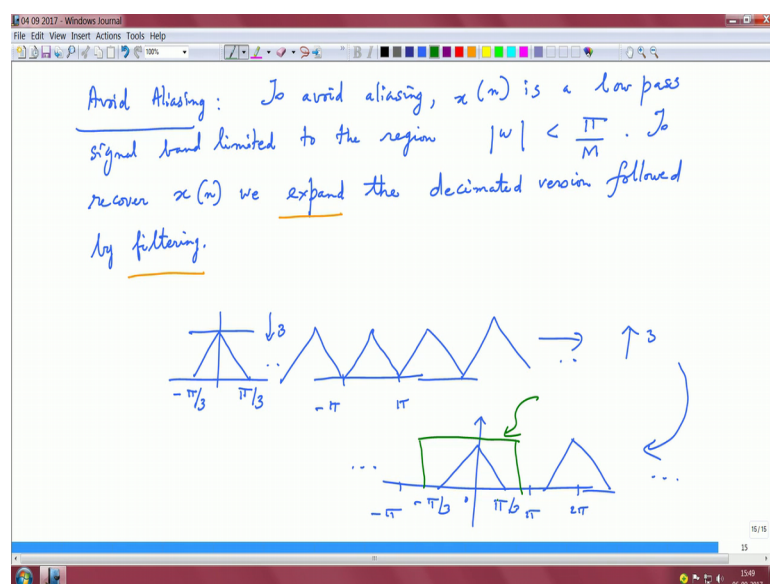 04 09 2017 - Windows Journal
File Edit View Insert Actions Tools Help
100%
B I
Avoid Aliasing : To avoid aliasing, x(n) is a low pass
signal band limited to the region |w| < π/M . To
recover x(n) we expand the decimated version followed
by filtering.
↓3 .. → .. ↑3
-π/3 π/3 -π π
... ...
-π -π/3 0 π/3 π 2π
15/15
15
15:49